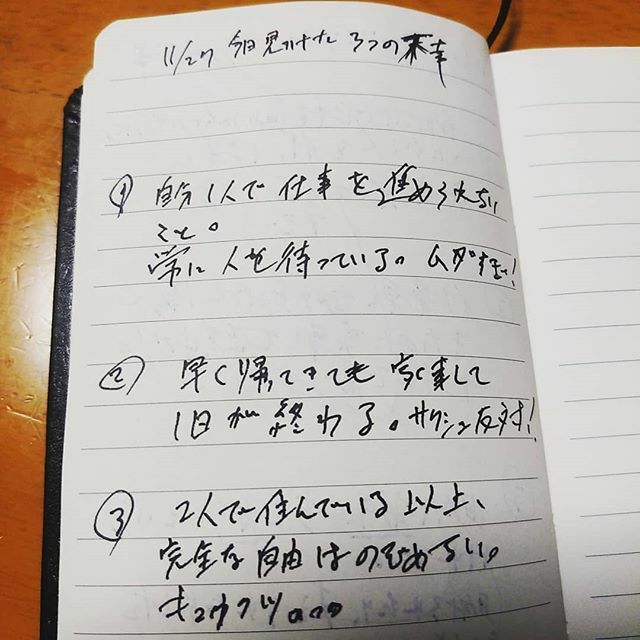 11/27 今日見つけた 3つの不幸
① 自分1人で仕事を進められない
こと。
常に人を待っている。ムダすぎ!
② 早く帰ってきても家事して
1日が終わる。サクシュ反対!
③ 2人で住んでいる以上、
完全な自由はのぞめない。
キュウクツ。。。